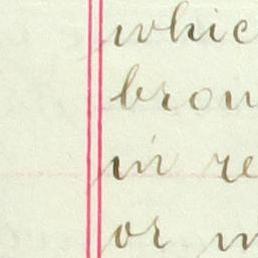 whic
brou
in re
or m